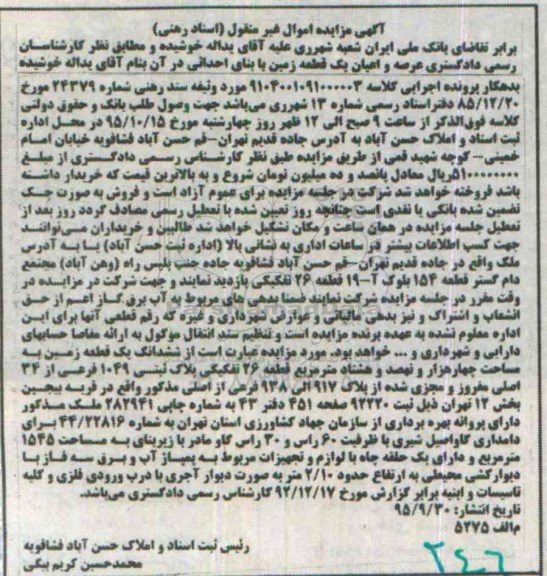 آگهی مزایده اموال غیر منقول (اسناد رهنی)
برابر تقاضای بانک ملی ایران شعبه شهرری علیه آقای یداله خوشیده و مطابق نظر کارشناسان
رسمی دادگستری عرصه و اعیان یک قطعه زمین با بنای احداثی در آن بنام آقای یداله خوشیده
بدهکار پرونده اجرایی کلاسه ۹۱۰۴۰۰۱۰۹۱۰۰۰۰۰۳ مورد وثیقه سند رهنی شماره ۲۴۳۷۹ مورخ
۸۵/۱۲/۲۰ دفتر اسناد رسمی شماره ۱۳ شهرری می‌باشد جهت وصول طلب بانک و حقوق دولتی
کلاسه فوق‌الذکر از ساعت ۹ صبح الی ۱۲ ظهر روز چهارشنبه مورخ ۹۵/۱۰/۱۵ در محل اداره
ثبت اسناد و املاک حسن آباد به آدرس جاده قدیم تهران–قم حسن آباد فشافویه خیابان امام
خمینی– کوچه شهید قمی از طریق مزایده طبق نظر کارشناس رسمی دادگستری از مبلغ
۵۱۰۰۰۰۰۰۰۰ریال معادل پانصد و ده میلیون تومان شروع و به بالاترین قیمت که خریدار داشته
باشد فروخته خواهد شد شرکت در جلسه مزایده برای عموم آزاد است و فروش به صورت چک
تضمین شده بانکی یا نقدی است چنانچه روز تعیین شده با تعطیل رسمی مصادف گردد روز بعد از
تعطیل جلسه مزایده در همان ساعت و مکان تشکیل خواهد شد طالبین و خریداران می‌توانند
جهت کسب اطلاعات بیشتر در ساعات اداری به نشانی بالا (اداره ثبت حسن آباد) یا به آدرس
ملک واقع در جاده قدیم تهران–قم حسن آباد فشافویه جاده جنب پلیس راه (وهن آباد) مجتمع
دام گستر قطعه ۱۵۴ بلوک آ–۱۹ قطعه ۲۶ تفکیکی بازدید نمایند و جهت شرکت در مزایده در
وقت مقرر در جلسه مزایده شرکت نمایند ضمنا بدهی های مربوط به آب برق،گاز اعم از حق
انشعاب و اشتراک و نیز بدهی مالیاتی و عوارض شهرداری و غیره که رقم قطعی آنها برای این
اداره معلوم نشده به عهده برنده مزایده است و تنظیم سند انتقال موکول به ارائه مفاصا حسابهای
دارایی و شهرداری و ... خواهد بود. مورد مزایده عبارت است از ششدانگ یک قطعه زمین به
مساحت چهارهزار و نهصد و هشتاد مترمربع قطعه ۲۶ تفکیکی پلاک ثبتی ۱۰۴۹ فرعی از ۳۴
اصلی مفروز و مجزی شده از پلاک ۲۱۹۱۷ ۹۳۸ فرعی از اصلی مذکور واقع در قریه بیجین
بخش ۱۲ تهران ذیل ثبت ۹۲۲۰ صفحه ۴۵۱ دفتر ۴۳ به شماره چاپی ۲۸۲۹۴۱ ملک مذکور
دارای پروانه بهره برداری از سازمان جهاد کشاورزی استان تهران به شماره ۴۴/۲۲۸۱۶ برای
دامداری گاواصیل شیری با ظرفیت ۶۰ راس و ۳۰ راس گاو مادر با زیربنای به مساحت ۱۵۴۵
مترمربع و دارای یک حلقه چاه با لوازم و تجهیزات مربوط به پمپاژ آب و برق سه فاز با
دیوارکشی محیطی به ارتفاع حدود ۲/۱۰ متر به صورت دیوار آجری با درب ورودی فلزی و کلیه
تاسیسات و ابنیه برابر گزارش مورخ ۹۲/۱۲/۱۷ کارشناس رسمی دادگستری می‌باشد.
تاریخ انتشار: ۹۵/۹/۳۰
م‌الف ۵۲۷۵
رئیس ثبت اسناد و املاک حسن آباد فشافویه
محمدحسین کریم بیگی
۲۴۶